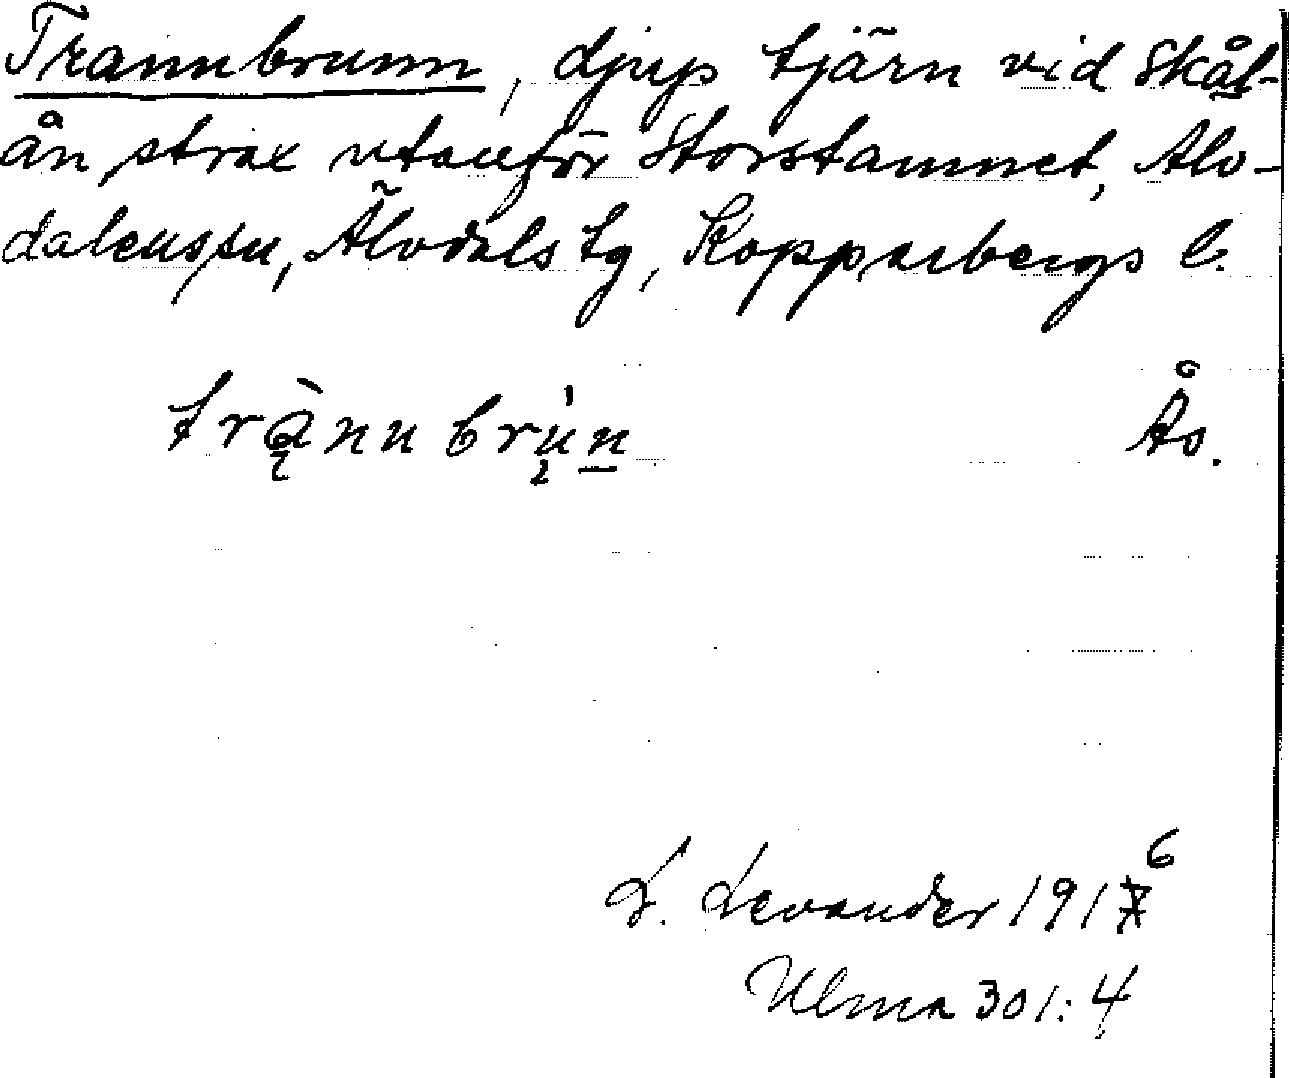 Trannbrunn, djup tjärn vid Skål-
ån strax utanför Storstamnet, Älv-
dalens sn, Älvdals tg, Kopparbergs l.
trànnbrùn Ås.
L. Levander 1916
Ulma 301:4